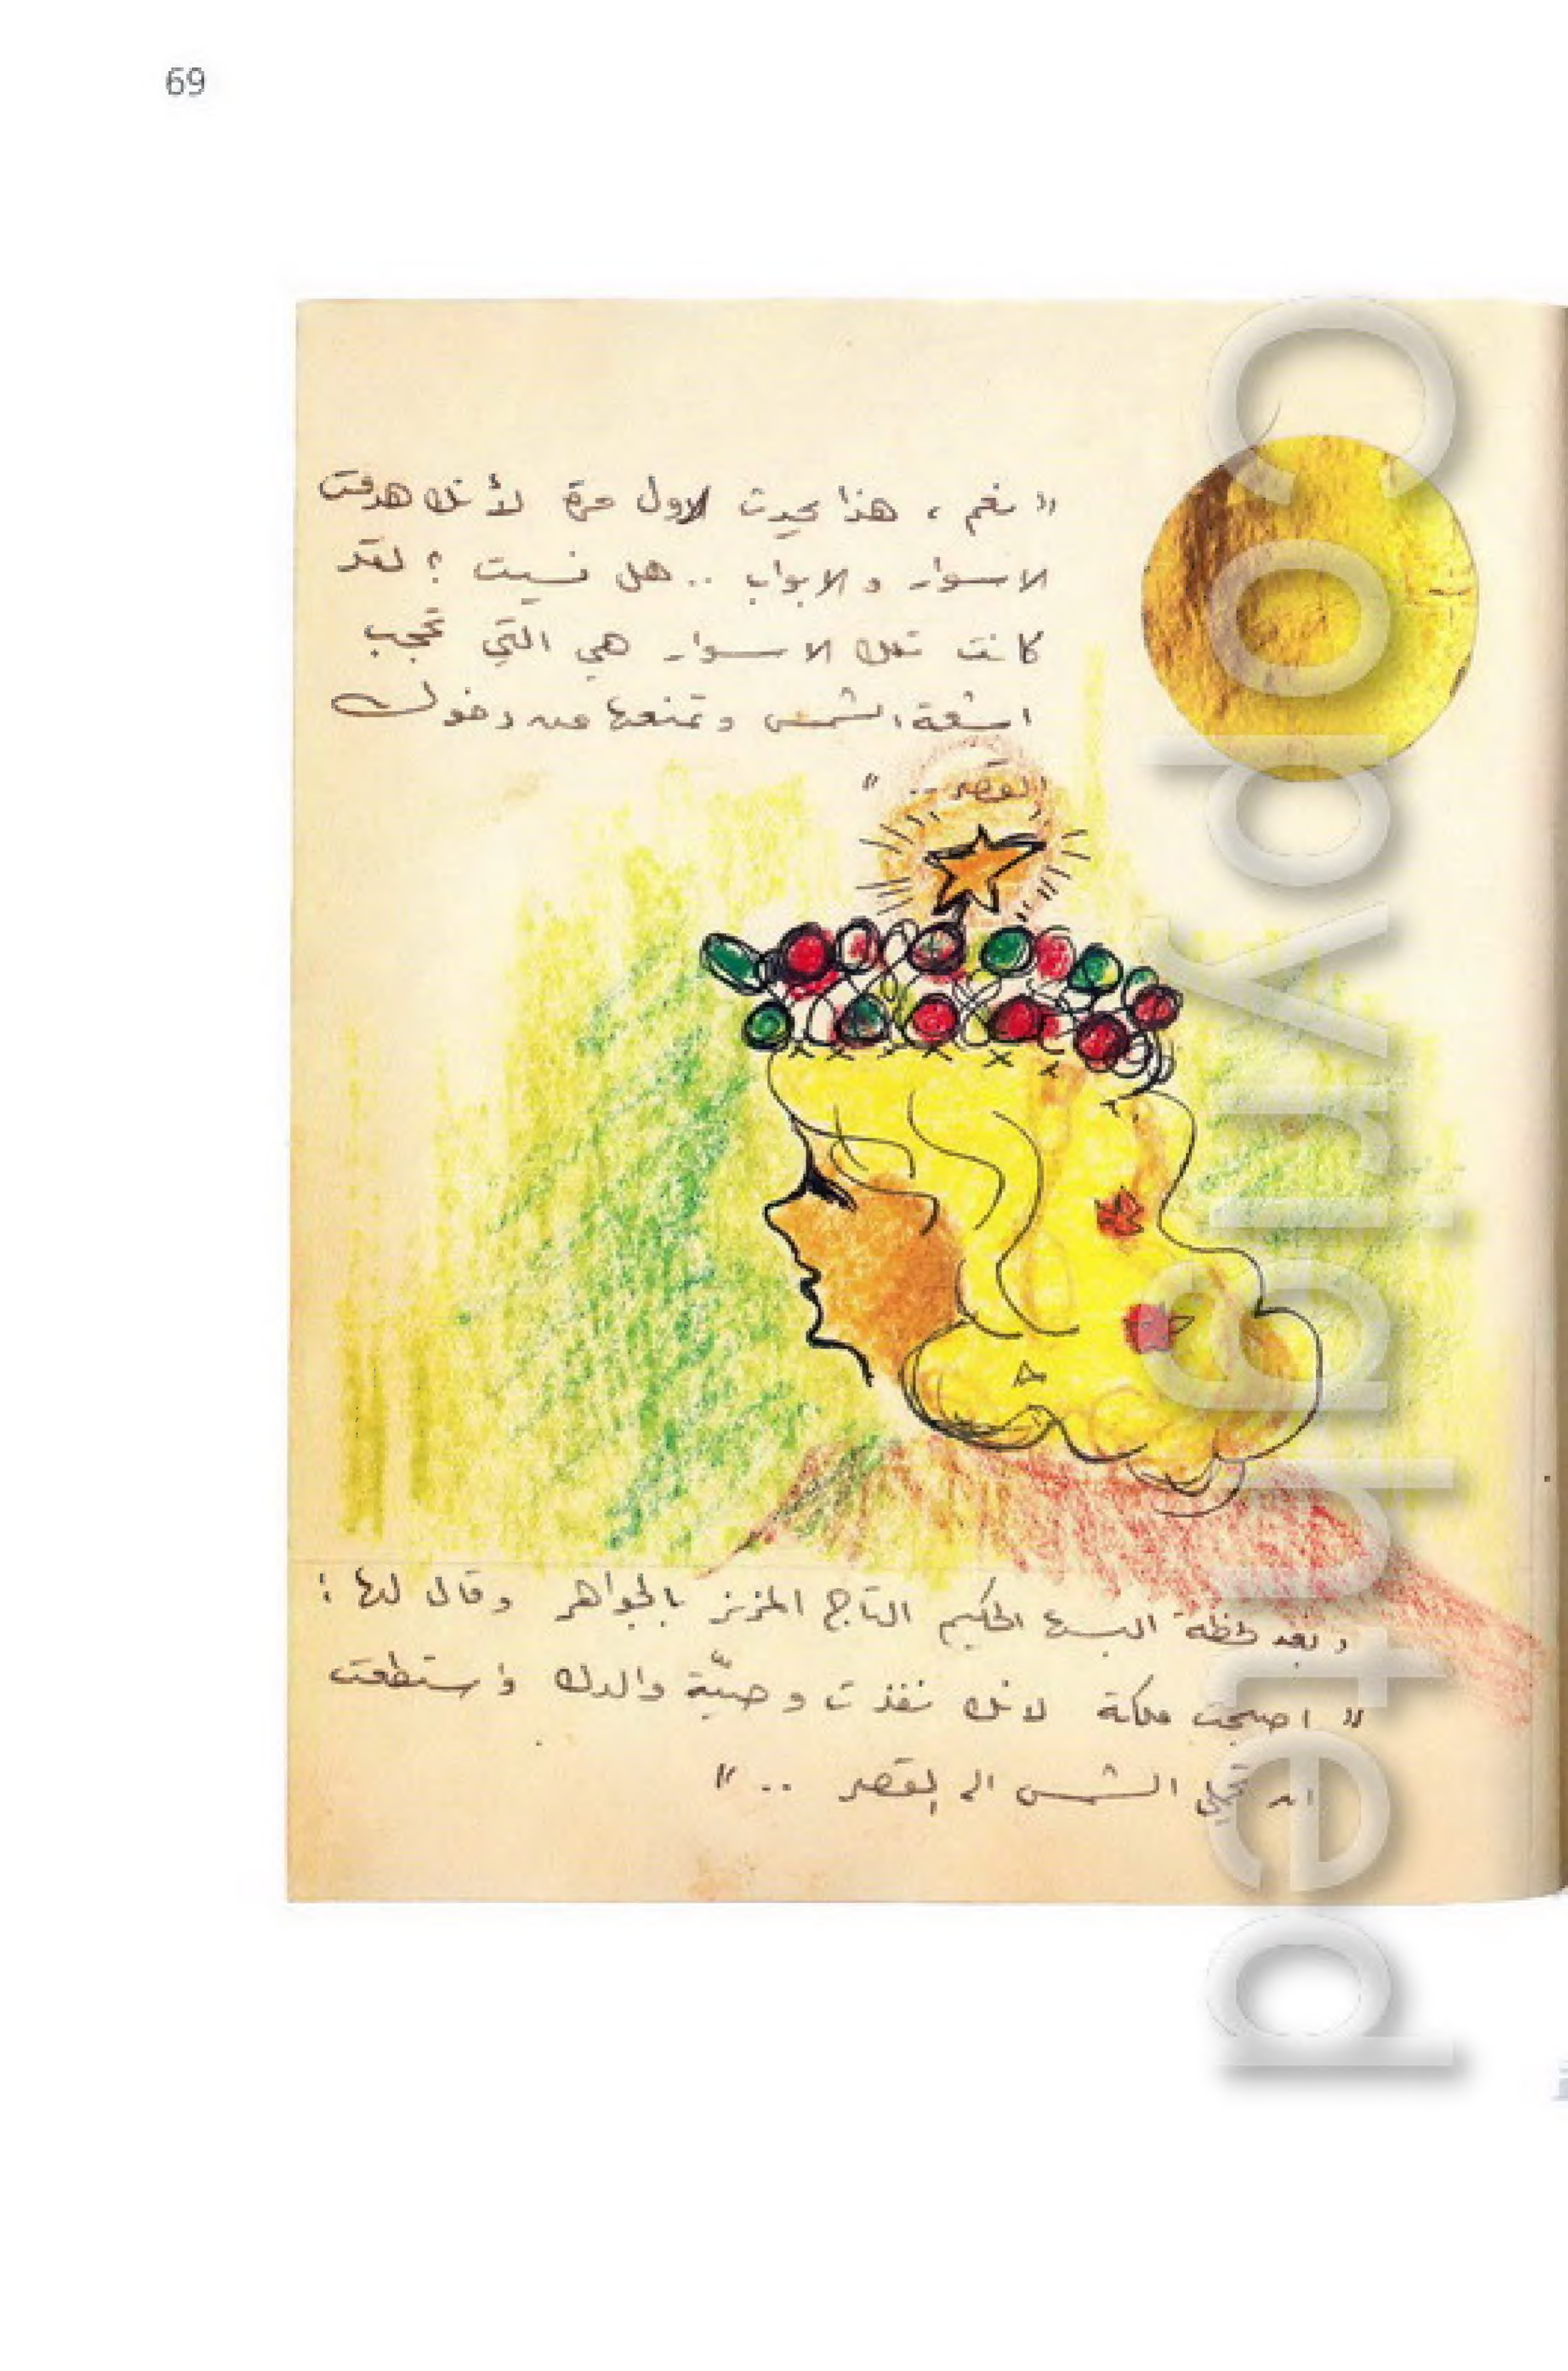 69
" نعم ، هذا يحدث لاول مرة لأنك هدمت
الاسوار والابواب .. هل نسيت ؟ لقد
كانت تلك الاسوار هي التي تحجب
اشعة الشمس وتمنعها من دخول
القصر .. "
وبعد لحظة البسها الحكيم التاج المزنر بالجواهر وقال لها :
" اصبحت ملكة لانك نفذت وصيّة والدك واستطعت
ان الشمس الى القصر .. "
Copyrighted